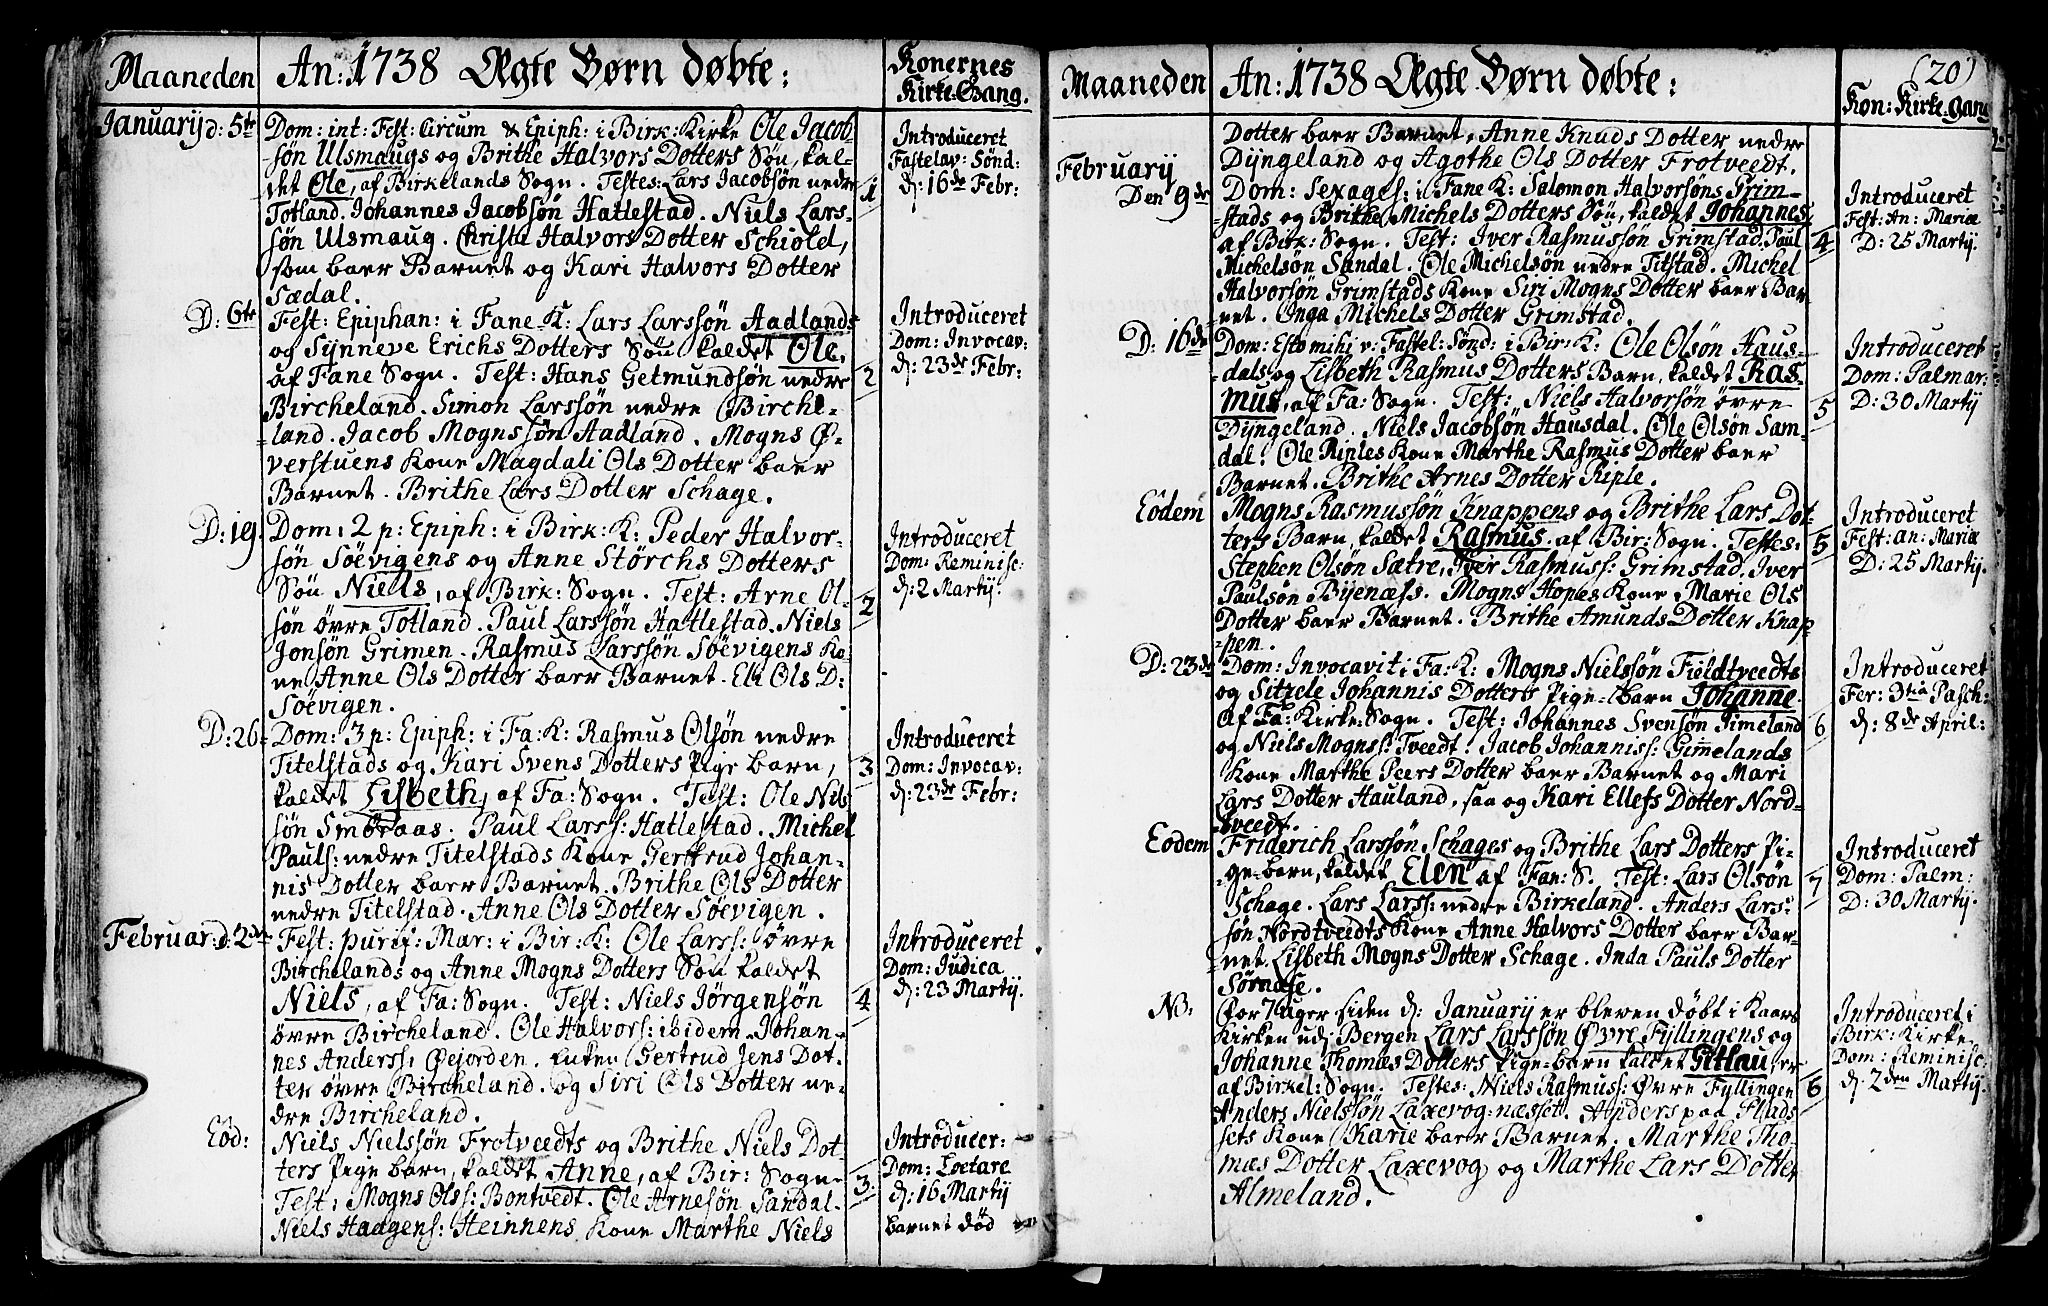 Maaneden
An: 1738 Ægte Børn døbte:
Konernes
Kirke-Gang.
Januarij d: 5te
Dom: int: Fest: Circum & Epiph: i Birk: Kirke Ole Jacob-
-søn Ulsmaugs og Brithe Halvors Dotters Søn, kal-
det Ole, af Birkelands Sogn. Testes: Lars Jacobsøn nedre
Totland. Johannes Jacobsøn Hatlestad. Niels Lars-
søn Ulsmaug. Christe Halvors Dotter Schiold,
som baer Barnet og Kari Halvors Dotter
Sædal.
1
Introduceret
Fastelav: Sønd:
d: 16de Febr:
D: 6te
Fest: Epiphan: i Fane K: Lars Larssøn Aadlands
og Synneve Erichs Dotters Søn kaldet Ole,
af Fane Sogn. Test: Hans Getmundsøn nedre
Bircheland. Simon Larssøn nedre Birche-
-land. Jacob Mognssøn Aadland. Mogns Ø-
verstuens Kone Magdali Ols Dotter baer
Barnet. Brithe Lars Dotter Schage.
2
Introduceret
Dom: Invocav:
d: 23de Febr:
D: 19.
Dom: 2 p: Epiph: i Birk: K: Peder Halvor-
søn Søevigens og Anne Størchs Dotters
Søn Niels, af Birk: Sogn. Test: Arne Ol-
søn øvre Totland. Paul Larssøn Hatlestad. Niels
Jonsøn Grimen. Rasmus Larssøn Søevigens Ko-
ne Anne Ols Dotter baer Barnet. Eli Ols D:
Søevigen.
2
Introduceret
Dom: Reminisc:
d: 2 Martij.
D: 26
Dom: 3 p: Epiph: i Fa: K: Rasmus Olsøn nedre
Titelstads og Kari Svens Dotters Pige barn,
kaldet Lisbeth, af Fa: Sogn. Test: Ole Nils
søn Smøraas. Paul Larss: Hatlestad. Michel
Pauls: nedre Titelstads Kone Gertrud Johan-
nis Dotter baer Barnet. Brithe Ols Dotter
nedre Titelstad. Anne Ols Dotter Søevigen.
3
Introduceret
Dom: Invocav:
d: 23de Febr:
Februar: d: 2den
Fest: purif: Mar: i Bir: K: Ole Larss: øvre
Birchelands og Anne Mogns Dotters Søn kaldet
Niels, af Fa: Sogn. Test: Niels Jørgensøn
øvre Bircheland. Ole Halvors: ibidem. Johan-
nes Anderss: Øejorden. Enken Gertrud Jens Dot-
ter øvre Bircheland. og Siri Ols Dotter ne-
dre Bircheland.
4
Introduceret
Dom: Judica
d: 23 Martij.
Eod:
Niels Nielssøn Frotveedts og Brithe Niels Dot-
ters Pige barn, kaldet Anne, af Bir: Sogn.
Test: Mogns Olss: Bontvedt. Ole Arnesøn Sandal.
Niels Haagens: Heinnens Kone Marthe Niels
3
Introducer:
Dom: Loetare
d: 16 Martij
barnet død
Maaneden
An: 1738 Ægte Børn døbte:
(20)
Kon: Kirke-gang
Dotter baer Barnet. Anne Knuds Dotter nedre
Dyngeland og Agothe Ols Dotter Frotveedt.
Februarij
Den 9de
Dom: Sexages: i Fane K: Salomon Halvorsøns Grim-
-stads og Brithe Michels Dotters Søn, kaldet Johannes,
af Birk: Sogn. Test: Iver Rasmussøn Grimstad. Paul
Michelsøn Sandal. Ole Michelsøn nedre Titstad. Michel
Halvorsøn Grimstads Kone Siri Mogns Dotter baer Bar-
net. Onga Michels Dotter Grimstad.
4
Introduceret
Fest: An: Mariæ
D: 25 Martij.
D: 16de
Dom: Estomihi v: Fastel: Sønd: i Bir: K: Ole Olsøn Haus-
-dals og Lisbeth Rasmus Dotters Barn, kaldet Ras-
mus, af Fa: Sogn. Test: Niels Halvorsøn øvre
Dyngeland. Niels Jacobsøn Hausdal. Ole Olsøn Sam-
dal. Ole Riples Kone Marthe Rasmus Dotter baer
Barnet. Brithe Arnes Dotter Riple.
5
Introduceret
Dom: Palmar:
D: 30 Martij
Eodem
Mogns Rasmussøn Knappens og Brithe Lars Dot-
ters Barn, kaldet Rasmus. af Bir: Sogn. Testes:
Stephen Olsøn Sætre, Iver Rasmuss: Grimstad. Iver
Paulsøn Byenæss. Mogns Hopes Kone Marie Ols
Dotter baer Barnet. Brithe Amunds Dotter Knap-
pen.
5
Introduceret
Fest: an: Mariæ
D: 25 Martij.
D: 23de
Dom: Invocavit i Fa: K: Mogns Nielssøn Fieldtveedts
og Sitzele Johannis Dotters Pige-barn Johanne.
af Fa: Kirke: Sogn. Test: Johannes Svensøn Gimeland
og Niels Mognss: Tveedt. Jacob Johanniss: Gimelands
Kone Marthe Peers Dotter baer Barnet og Mari
Lars Dotter Hauland, saa og Kari Ellefs Dotter Nord-
tveedt.
6
Introduceret
Fer: 3tia Pasch:
d: 8de April:
Eodem
Friderich Larssøn Schages og Brithe Lars Dotters Pi-
ge-barn, kaldet Elen af Fan: S. Test: Lars Olson
Schage. Lars Larss: nedre Birkeland. Anders Lars-
søn Nordtveedts Kone Anne Halvors Dotter baer Bar-
net. Lisbeth Mogns Dotter Schage. Inda Pauls Dotter
Sørnæse.
7
Introduceret
Dom: Palm:
D: 30 Martij.
NB:
For 7 uger siden d: Januarij er bleven døbt i Kaars
Kirken ud; Bergen Lars Larssøn Øvre Fyllingens og
Johanne Thomæs Dotters Pige-barn kaldet Atlau, er
af Birkel: Sogn. Testes: Niels Rasmuss: Øvre Fyllingen
Anders Nielssøn Laxevog-næsset. Anders paa Pladsets
Kone Karie baer Barnet. Marthe Tho-
mæs Dotter Laxevog og Marthe Lars Dotter
Almeland.
6
Introduceret i
Birk: Kirke
Dom: Reminisc
d: 2den Martij.